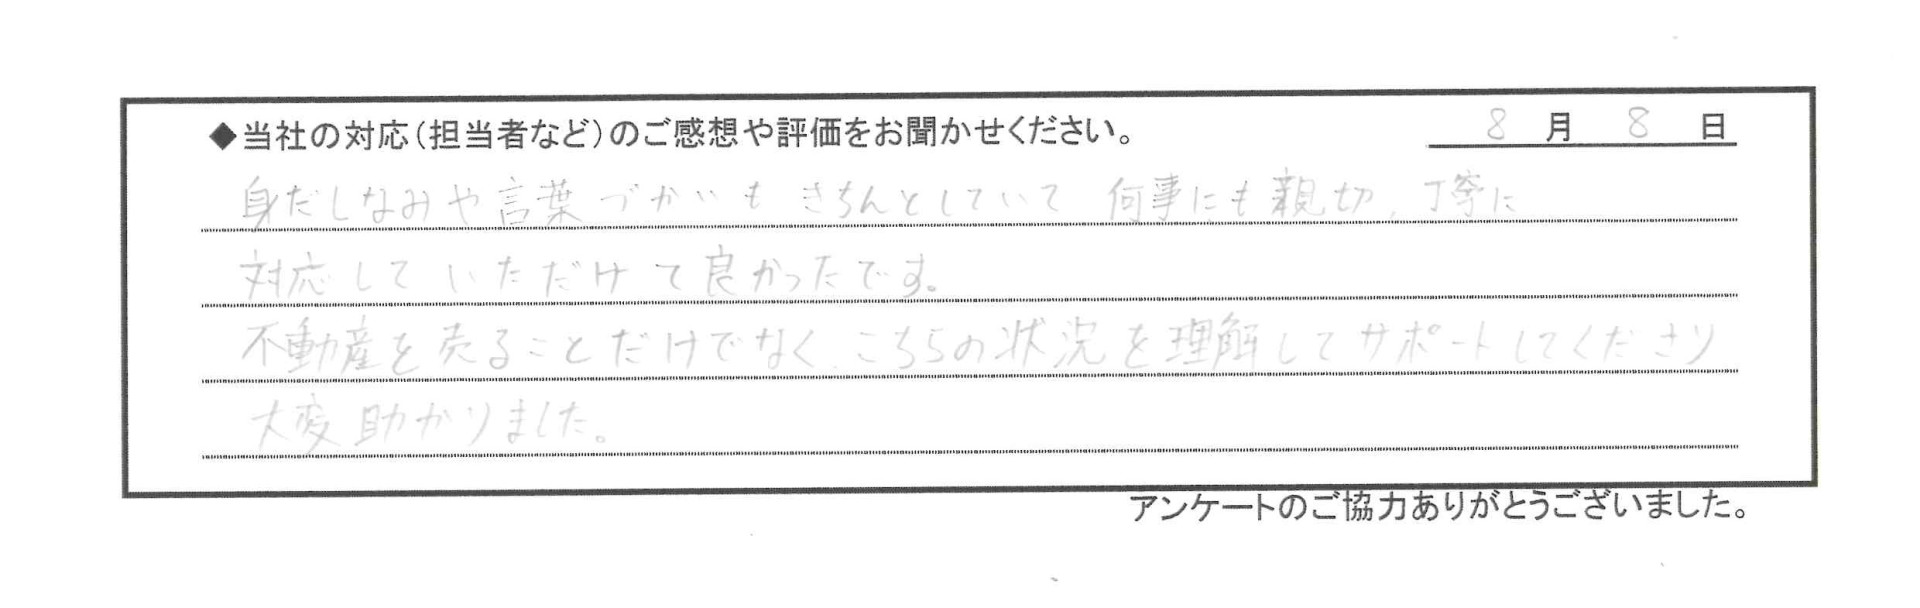 ◆当社の対応（担当者など）のご感想や評価をお聞かせください。 8月8日
身だしなみや言葉づかいもきちんとしていて 何事にも親切、丁寧に
対応していただけて良かったです。
不動産を売ることだけでなく、こちらの状況を理解してサポートしてくださり
大変助かりました。
アンケートのご協力ありがとうございました。